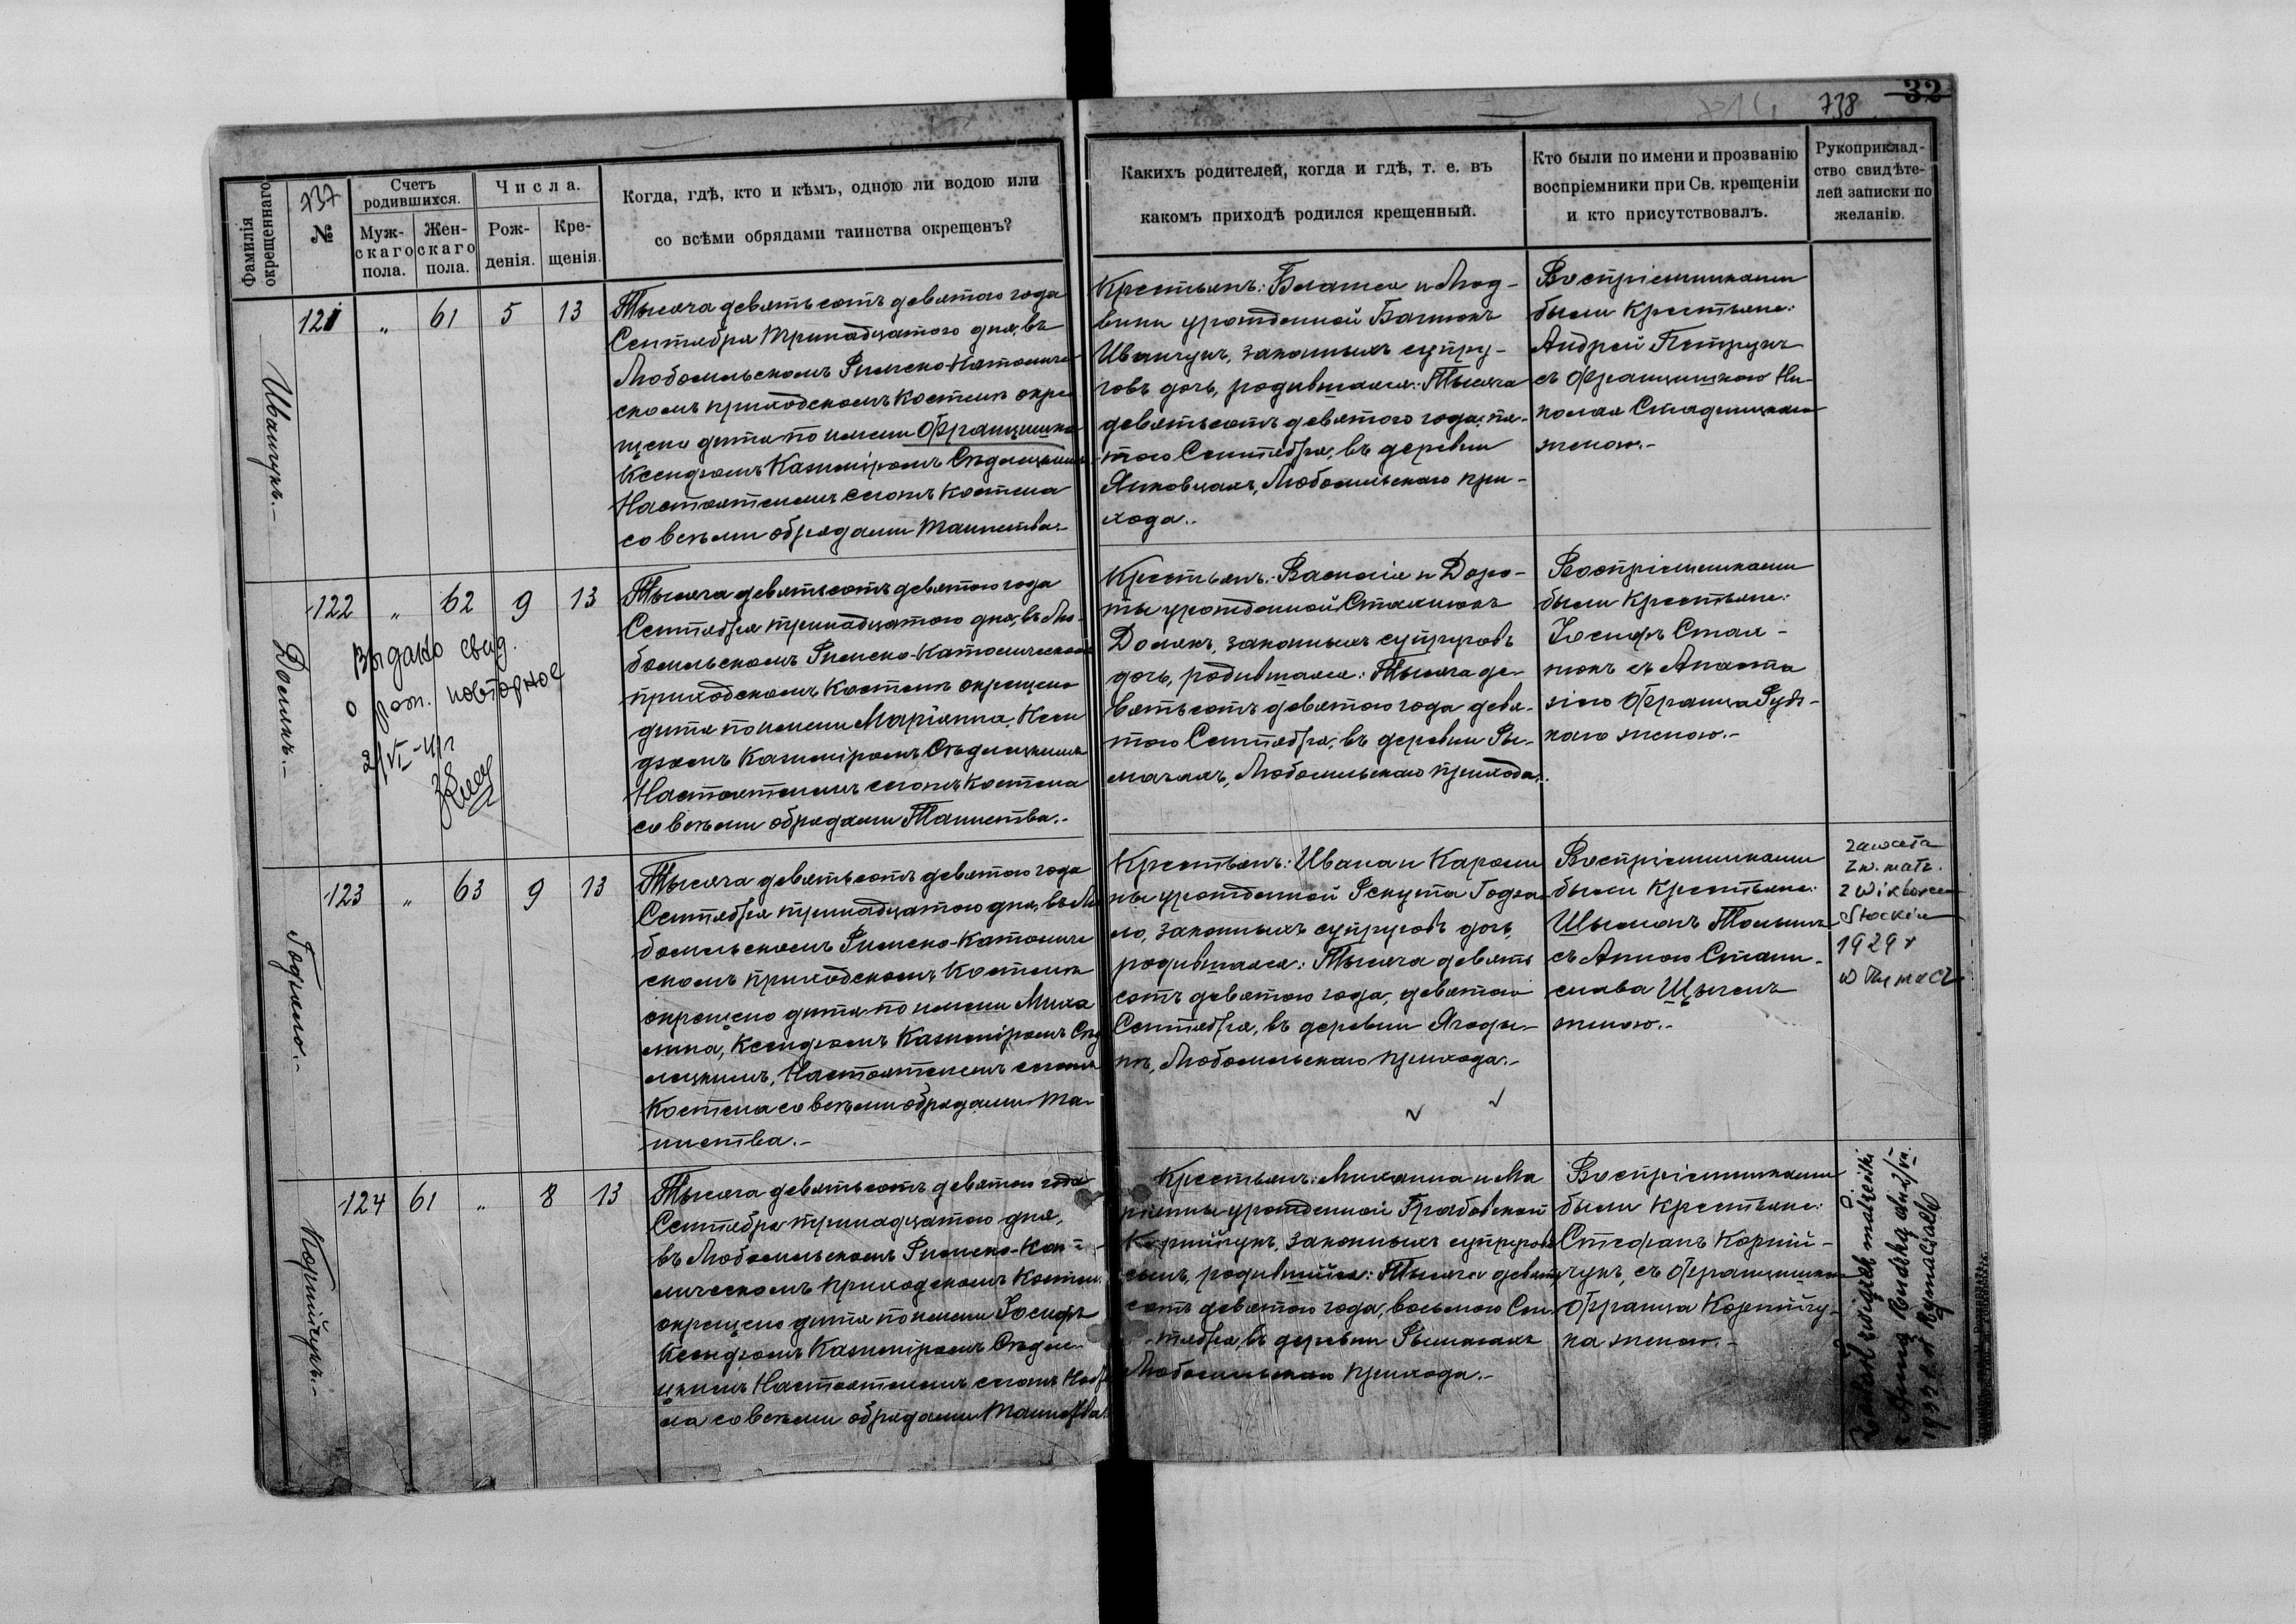 737
738
32
Фамилія окрещеннаго
№
Счетъ родившихся.
Муж-
скаго
пола.
Жен-
скаго
пола.
Числа.
Рож-
денія.
Кре-
щенія.
Когда, гдѣ, кто и кѣмъ, одною ли водою или
со всѣми обрядами таинства окрещенъ?
Какихъ родителей, когда и гдѣ, т. е. въ
какомъ приходѣ родился крещенный.
Кто были по имени и прозванію
воспріемники при Св. крещеніи
и кто присутствовалъ.
Рукоприклад-
ство свидѣте-
лей записки по
желанію.
Иванчукъ.-
121 „ 61 5 13
Тысяча девятьсотъ девятого года
Сентября тринадцатого дня, въ
Любомльскомъ Римско-Католиче-
скомъ приходскомъ Костелѣ окре-
щено дитя по имени Францишка
Ксендзомъ Казиміромъ
Настоятелемъ сегожъ Костела
со всѣми обрядами Таинства.-
Крестьянъ: и Люд-
вики урожденной
Иванчукъ, законныхъ супру-
говъ дочь, родившаяся: Тысяча
девятьсотъ девятого года, пя-
того Сентября, въ деревни
Янковцахъ, Любомльскаго при-
хода.-
Воспріемниками
были Крестьяне:
Андрей Петрукъ
съ Францишкою Ни-
колая
женою.-
Домякъ.-
122 „ 62 9 13
Выдано свид.
о рож. повторное
2/VI-41г
Тысяча девятьсотъ девятого года
Сентября тринадцатого дня, въ Лю-
бомльскомъ Римско-Католическомъ
приходскомъ Костелѣ окрещено
дитя по имени Маріянна, Ксен-
дзомъ Казиміромъ
Настоятелемъ сегожъ Костела
со всѣми обрядами Таинства.-
Крестьянъ: Василія и Доро-
ты урожденной Сталюкъ
Домякъ, законныхъ супруговъ
дочь, родившаяся: Тысяча де-
вятьсотъ девятого года девя-
того Сентября, въ деревни Ры-
мачахъ, Любомльскаго прихода.-
Воспріемниками
были Крестьяне:
Іосифъ Стал-
люкъ съ Анаста-
зіею Франца Руд-
каго женою.-
Годзяло.-
123 „ 63 9 13
Тысяча девятьсотъ девятого года
Сентября тринадцатого дня, въ Лю-
бомльскомъ Римско-Католиче-
скомъ приходскомъ Костелѣ
окрещено дитя по имени Миха-
лина, Ксендзомъ Казиміромъ
Настоятелемъ сегожъ
Костела со всѣми обрядами Та-
инства.-
Крестьянъ: Ивана и Кароли-
ны урожденной Рекута Годзя-
ло, законныхъ супруговъ дочь,
родившаяся: Тысяча девять-
сотъ девятого года, девятого
Сентября, въ деревни Ягоди-
нѣ, Любомльскаго прихода.-
Воспріемниками
были Крестьяне:
Шымонъ
съ Анною Стани-
слава
женою.-
zawarła
zw. małż.
z Wiktorem
1929 r
w Rymacz
Корнійчукъ.-
124 61 „ 8 13
Тысяча девятьсотъ девятого года
Сентября тринадцатого дня,
въ Любомльскомъ Римско-Кат-
лическомъ приходскомъ Костел
окрещено дитя по имени Іосифъ
Ксендзомъ Казиміромъ
Настоятелемъ сегожъ Косте-
ла со всѣми обрядами Таинства.
Крестьянъ: Михаила и Ма-
рыянны урожденной Грабовской
Корнійчукъ, законныхъ супруговъ
сынъ, родившійся: Тысяча девять
сотъ девятого года, восьмого Сен-
тября, въ деревни Рымачахъ
Любомльскаго прихода.-
Воспріемниками
были Крестьяне:
Стефанъ Корній-
чукъ, съ Францишкою
Франца Корнійчу-
ка женою.-
Zawarł związek małżeński
z Anną Rudską dnia
1933 r. w Rymaczach